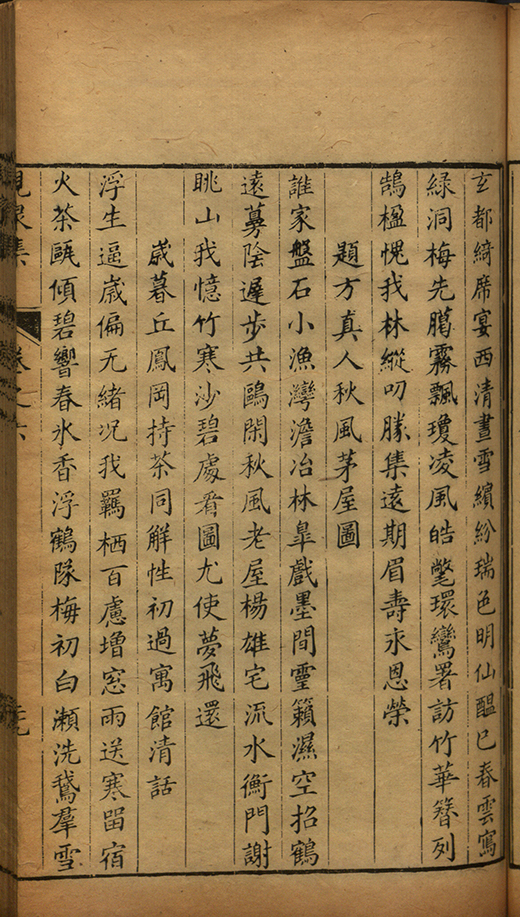 玄都綺席宴西清晝雪繽紛瑞色明仙醖已春雲寫
綠洞梅先臈霧飄瓊凌風皓氅環鸞署訪竹華簪列
鵠楹愧我林縱叨勝集遠期眉壽永恩榮
題方真人秋風茅屋圖
誰家盤石小漁灣澹冶林臯戲墨間靈籟濕空招鶴
遠蕚陰遲步共鷗閑秋風老屋楊雄宅流水衡門謝
眺山我憶竹寒沙碧處看圖尤使夢飛還
歲暮丘鳳岡持茶同解性初過寓館清話
浮生逼歲偏无緒况我羈栖百慮增窓雨送寒留宿
火茶甌傾碧響春氷香浮鶴隊梅初白瀬洗鵞羣雪
卷之六